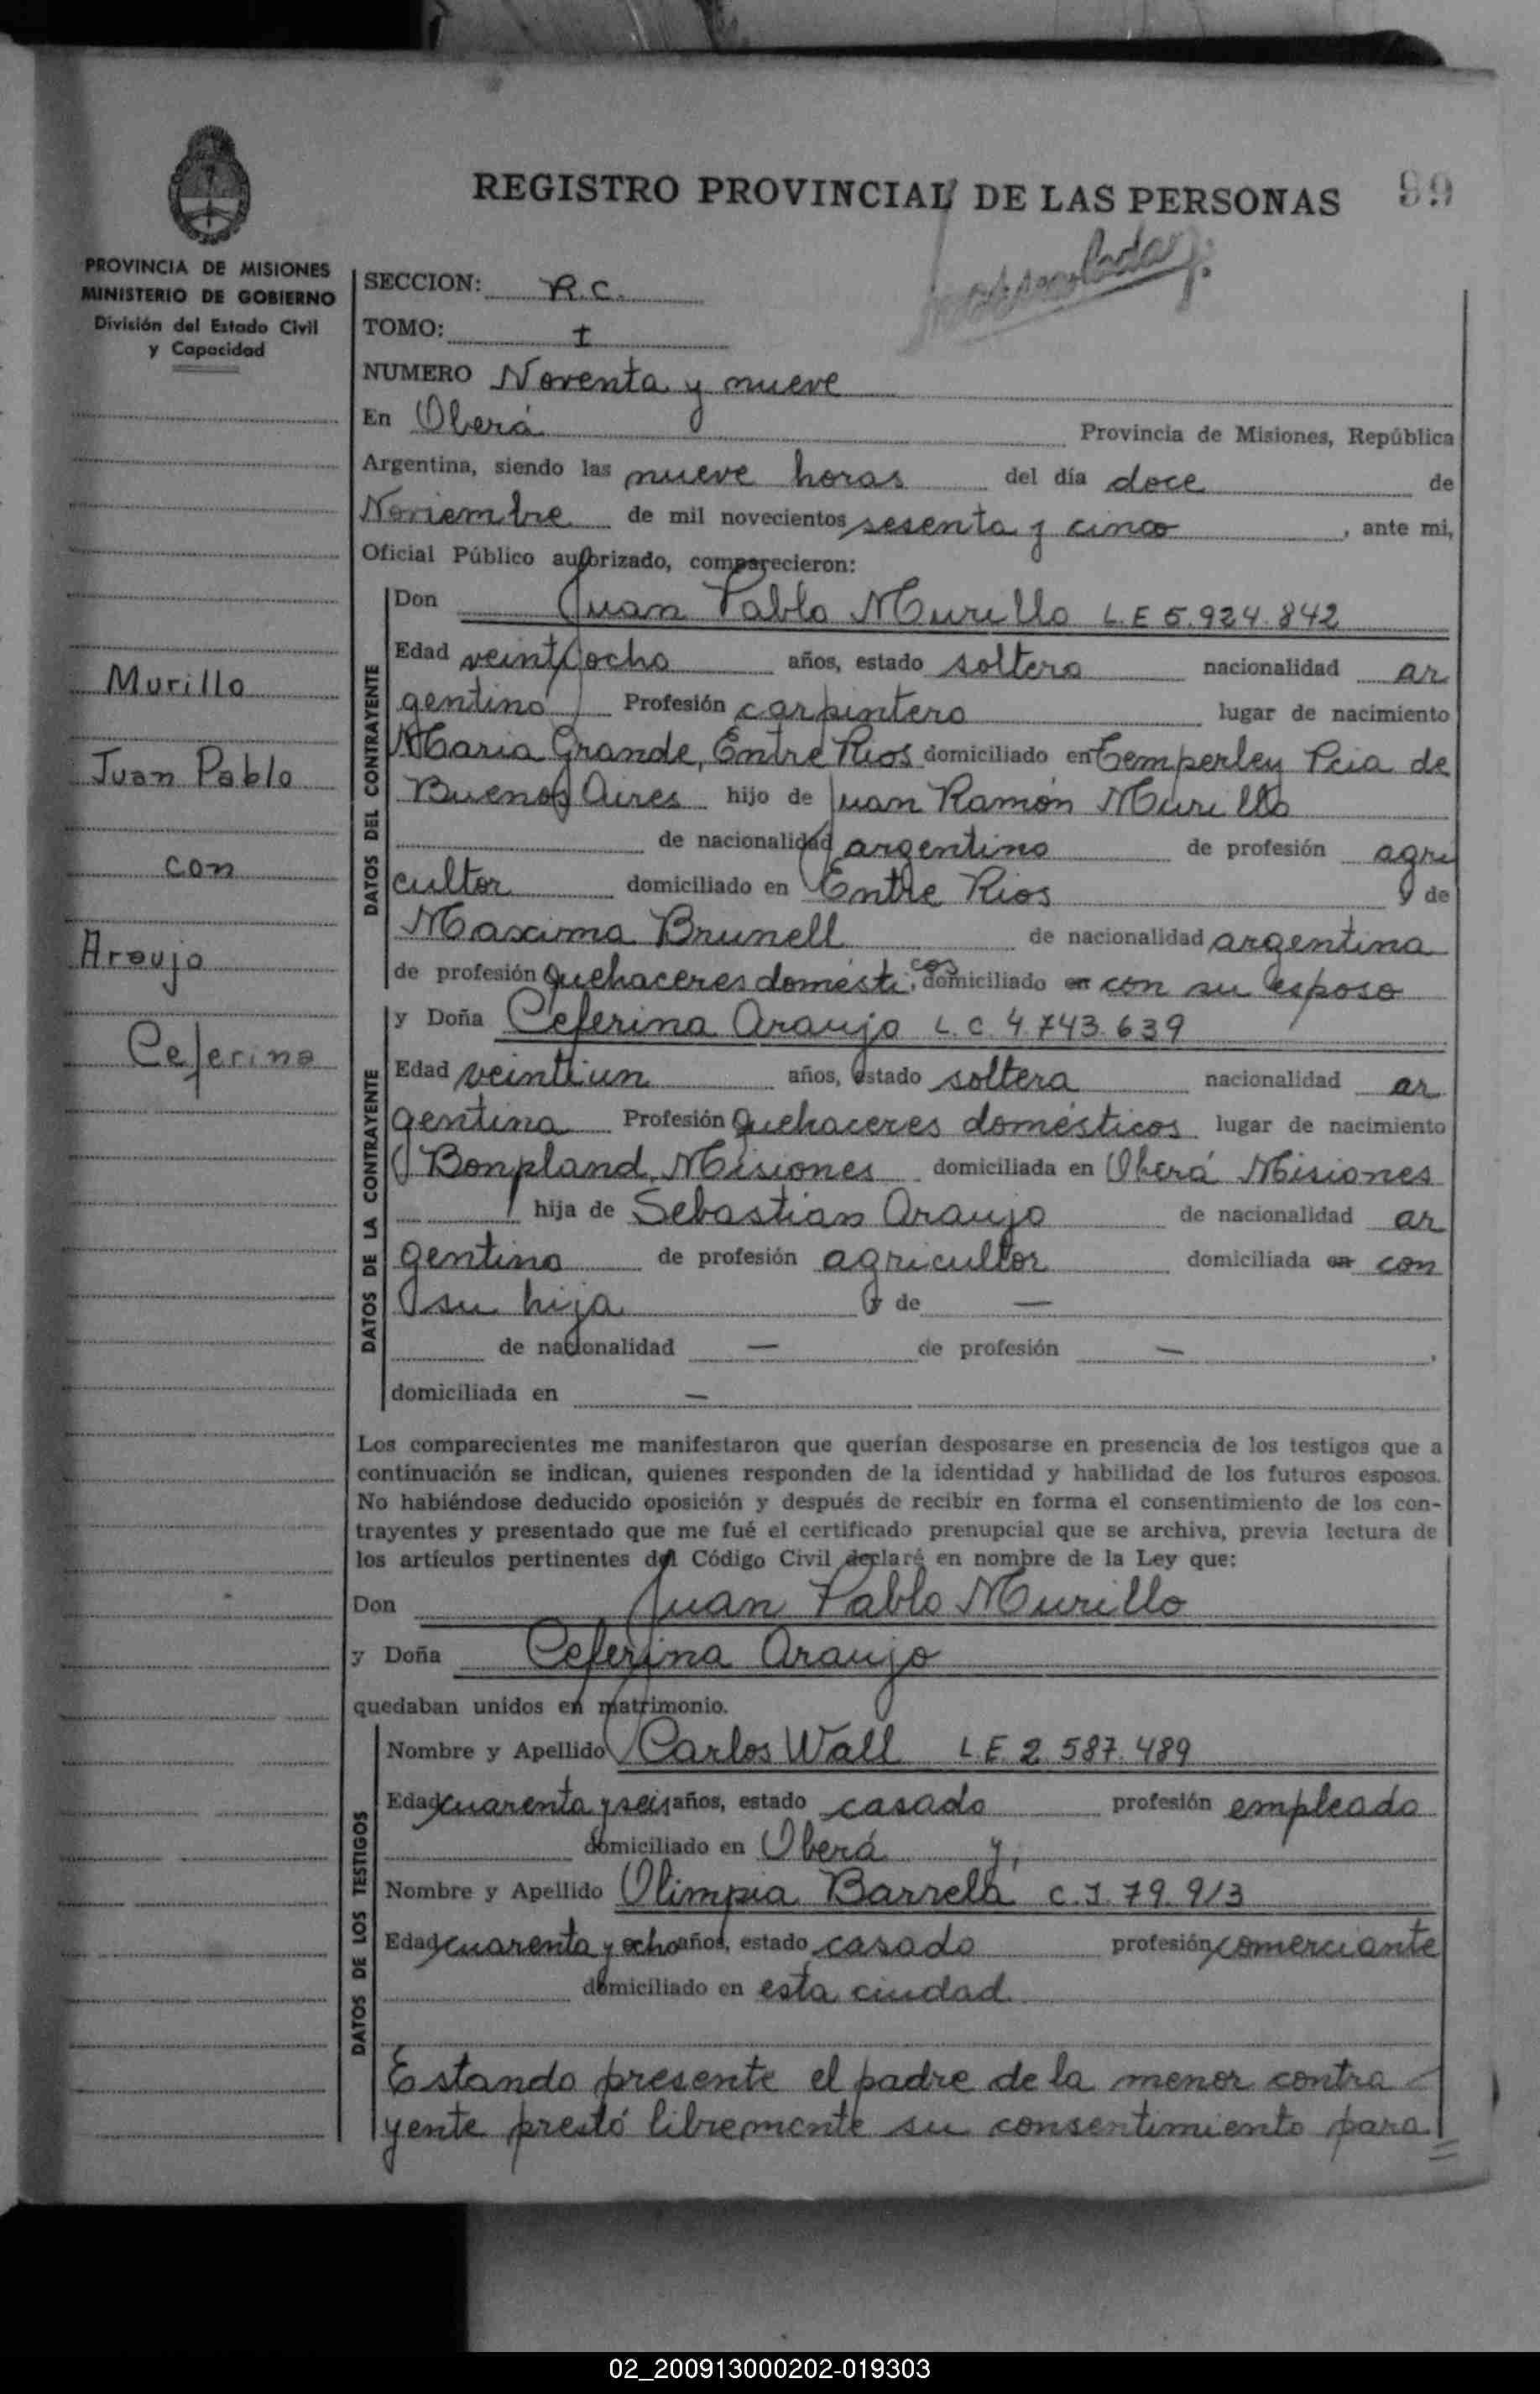 REGISTRO PROVINCIAL DE LAS PERSONAS 99
PROVINCIA DE MISIONES
MINISTERIO DE GOBIERNO
División del Estado Civil
y Capacidad
Murillo
Juan Pablo
con
Araujo
Ceferina
SECCION: R.C.
TOMO: I
NUMERO Noventa y nueve
En Oberá Provincia de Misiones, República
Argentina, siendo las nueve horas del día doce de
Noviembre de mil novecientos sesenta y cinco, ante mi,
Oficial Público autorizado, comparecieron:
DATOS DEL CONTRAYENTE
Don Juan Pablo Murillo L.E 5.924.842
Edad veintiocho años, estado soltero nacionalidad ar
gentino Profesión carpintero lugar de nacimiento
Maria Grande, Entre Rios domiciliado en Temperley Pcia de
Buenos Aires hijo de Juan Ramón Murillo
de nacionalidad argentino de profesión agri
cultor domiciliado en Entre Rios y de
Maxima Brunell de nacionalidad argentina
de profesión Quehaceres domésticos domiciliado en con su esposo
DATOS DE LA CONTRAYENTE
y Doña Ceferina Araujo L.C. 4.743.639
Edad veintiun años, estado soltera nacionalidad ar
gentina Profesión Quehaceres domésticos lugar de nacimiento
Bonpland, Misiones domiciliada en Oberá Misiones
hija de Sebastian Araujo de nacionalidad ar
gentino de profesión agricultor domiciliada en con
su hija y de —
de nacionalidad — de profesión —,
domiciliada en —
Los comparecientes me manifestaron que querían desposarse en presencia de los testigos que a
continuación se indican, quienes responden de la identidad y habilidad de los futuros esposos.
No habiéndose deducido oposición y después de recibir en forma el consentimiento de los con-
trayentes y presentado que me fué el certificado prenupcial que se archiva, previa lectura de
los artículos pertinentes del Código Civil declaré en nombre de la Ley que:
Don Juan Pablo Murillo
y Doña Ceferina Araujo
quedaban unidos en matrimonio.
DATOS DE LOS TESTIGOS
Nombre y Apellido Carlos Wall L.E. 2.587.489
Edad cuarenta y seis años, estado casado profesión empleado
domiciliado en Oberá y,
Nombre y Apellido Olimpia Barrela C.I. 79.913
Edad cuarenta y ocho años, estado casado profesión comerciante
domiciliado en esta ciudad
Estando presente el padre de la menor contra
yente prestó libremente su consentimiento para =
02_200913000202-019303